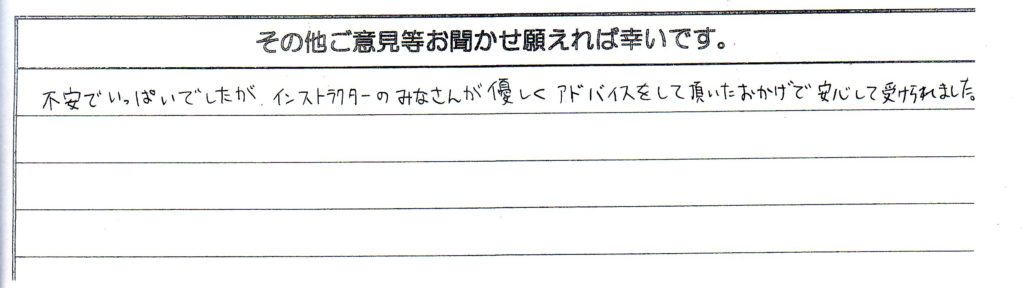 その他ご意見等お聞かせ願えれば幸いです。
不安でいっぱいでしたが、インストラクターのみなさんが優しくアドバイスをして頂いたおかげで安心して受けられました。